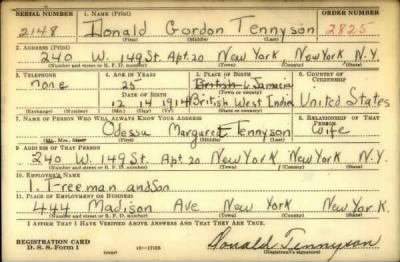 SERIAL NUMBER 1. NAME (Print) ORDER NUMBER
2148 Donald Gordon Tennyson 2825
(First) (Middle) (Last)
2. ADDRESS (Print)
240 W. 149 St. Apt. 20 New York New York N.Y.
(Number and street or R. F. D. number) (Town) (County) (State)
3. TELEPHONE 4. AGE IN YEARS 5. PLACE OF BIRTH 6. COUNTRY OF CITIZENSHIP
none 25 British Jamaica
DATE OF BIRTH (Town or county)
12 14 1914 British West Indie United States
(Exchange) (Number) (Mo.) (Day) (Yr.) (State or country)
7. NAME OF PERSON WHO WILL ALWAYS KNOW YOUR ADDRESS 8. RELATIONSHIP OF THAT PERSON
Odessa Margaret Tennyson Wife
(Mr., Mrs., Miss) (First) (Middle) (Last)
9. ADDRESS OF THAT PERSON
240 W. 149 St. Apt. 20 New York New York N.Y.
(Number and street or R. F. D. number) (Town) (County) (State)
10. EMPLOYER'S NAME
I. Freeman and Son
11. PLACE OF EMPLOYMENT OR BUSINESS
444 Madison Ave New York New York.
(Number and street or R. F. D. number) (Town) (County) (State)
I AFFIRM THAT I HAVE VERIFIED ABOVE ANSWERS AND THAT THEY ARE TRUE.
REGISTRATION CARD
D. S. S. Form 1 (over) 16—17105 Donald Tennyson
(Registrant's signature)